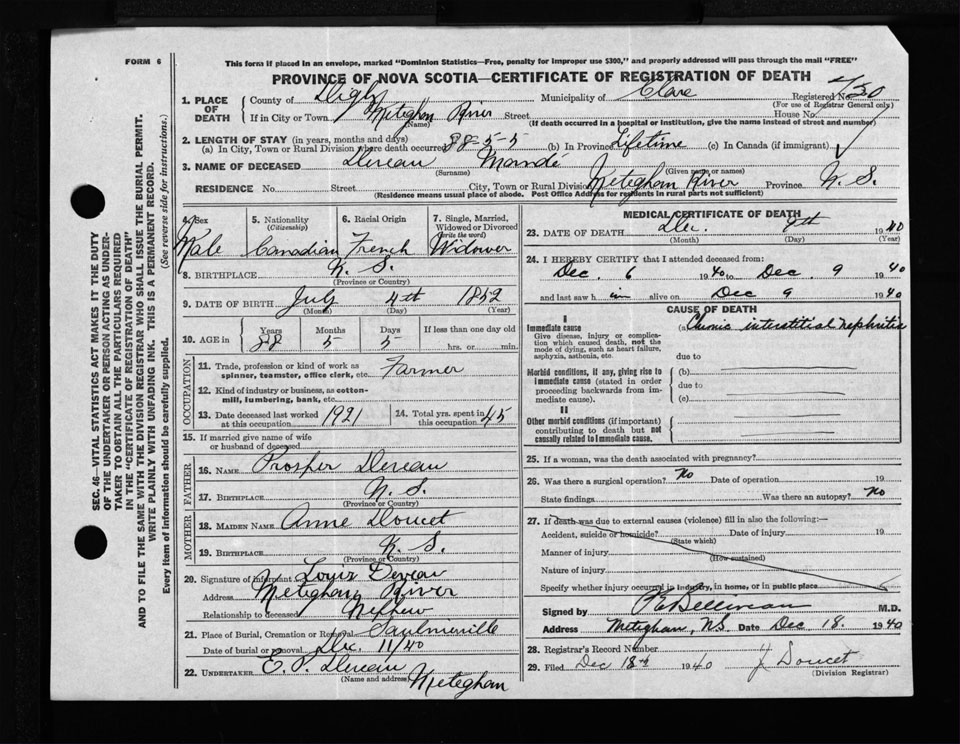 FORM 6
This form if placed in an envelope, marked "Dominion Statistics—Free, penalty for improper use $300," and properly addressed will pass through the mail "FREE"
PROVINCE OF NOVA SCOTIA—CERTIFICATE OF REGISTRATION OF DEATH
1. PLACE OF DEATH
County of Digby Municipality of Clare Registered No.
(For use of Registrar General only)
If in City or Town Meteghan River Street House No.
(Name) (If death occurred in a hospital or institution, give the name instead of street and number)
2. LENGTH OF STAY (in years, months and days)
(a) In City, Town or Rural Division where death occurred 88-5-5 (b) In Province Lifetime (c) In Canada (if immigrant)
3. NAME OF DECEASED Dereau Mandé
(Surname) (Given name or names)
RESIDENCE No. Street City, Town or Rural Division Meteghan River Province N. S.
(Residence means usual place of abode. Post Office Address for residents in rural parts not sufficient)
4. Sex Male
5. Nationality (Citizenship) Canadian
6. Racial Origin French
7. Single, Married, Widowed or Divorced (write the word) Widower
8. BIRTHPLACE N. S.
(Province or Country)
9. DATE OF BIRTH July 4th 1852
(Month) (Day) (Year)
10. AGE in Years 88 Months 5 Days 5 If less than one day old
hrs. or min.
OCCUPATION
11. Trade, profession or kind of work as spinner, teamster, office clerk, etc. Farmer
12. Kind of industry or business, as cotton-mill, lumbering, bank, etc.
13. Date deceased last worked at this occupation 1921
14. Total yrs. spent in this occupation 45
15. If married give name of wife or husband of deceased
FATHER
16. NAME Prosper Dereau
17. BIRTHPLACE N. S.
(Province or Country)
MOTHER
18. MAIDEN NAME Anne Doucet
19. BIRTHPLACE N. S.
(Province or Country)
20. Signature of Informant Louis Dereau
Address Meteghan River
Relationship to deceased Nephew
21. Place of Burial, Cremation or Removal Saulnierville
Date of burial or removal Dec. 11/40
22. UNDERTAKER E. P. Dereau
(Name and address) Meteghan
MEDICAL CERTIFICATE OF DEATH
23. DATE OF DEATH Dec. 9th 1940
(Month) (Day) (Year)
24. I HEREBY CERTIFY that I attended deceased from:
Dec. 6 1940 to Dec. 9 1940
and last saw him alive on Dec 9 1940
CAUSE OF DEATH
I
Immediate cause (a) Chronic interstitial nephritis
Give disease, injury or complication which caused death, not the mode of dying, such as heart failure, asphyxia, asthenia, etc.
due to
Morbid conditions, if any, giving rise to immediate cause (stated in order proceeding backwards from immediate cause).
(b)
due to
(c)
II
Other morbid conditions (if important) contributing to death but not causally related to immediate cause.
25. If a woman, was the death associated with pregnancy?
26. Was there a surgical operation? No Date of operation 19
State findings Was there an autopsy? No
27. If death was due to external causes (violence) fill in also the following:—
Accident, suicide or homicide? Date of injury 19
(State which)
Manner of injury
(How sustained)
Nature of injury
Specify whether injury occurred in industry, in home, or in public place
Signed by M.D.
Address Meteghan, N.S. Date Dec 18. 1940
28. Registrar's Record Number
29. Filed Dec 18th 1940 J Doucet
(Division Registrar)
SEC. 46—VITAL STATISTICS ACT MAKES IT THE DUTY
OF THE UNDERTAKER OR PERSON ACTING AS UNDER-
TAKER TO OBTAIN ALL THE PARTICULARS REQUIRED
IN THE "CERTIFICATE OF REGISTRATION OF DEATH"
AND TO FILE THE SAME WITH THE DIVISION REGISTRAR WHO SHALL ISSUE THE BURIAL PERMIT.
WRITE PLAINLY WITH UNFADING INK. THIS IS A PERMANENT RECORD.
Every item of information should be carefully supplied. (See reverse side for instructions.)